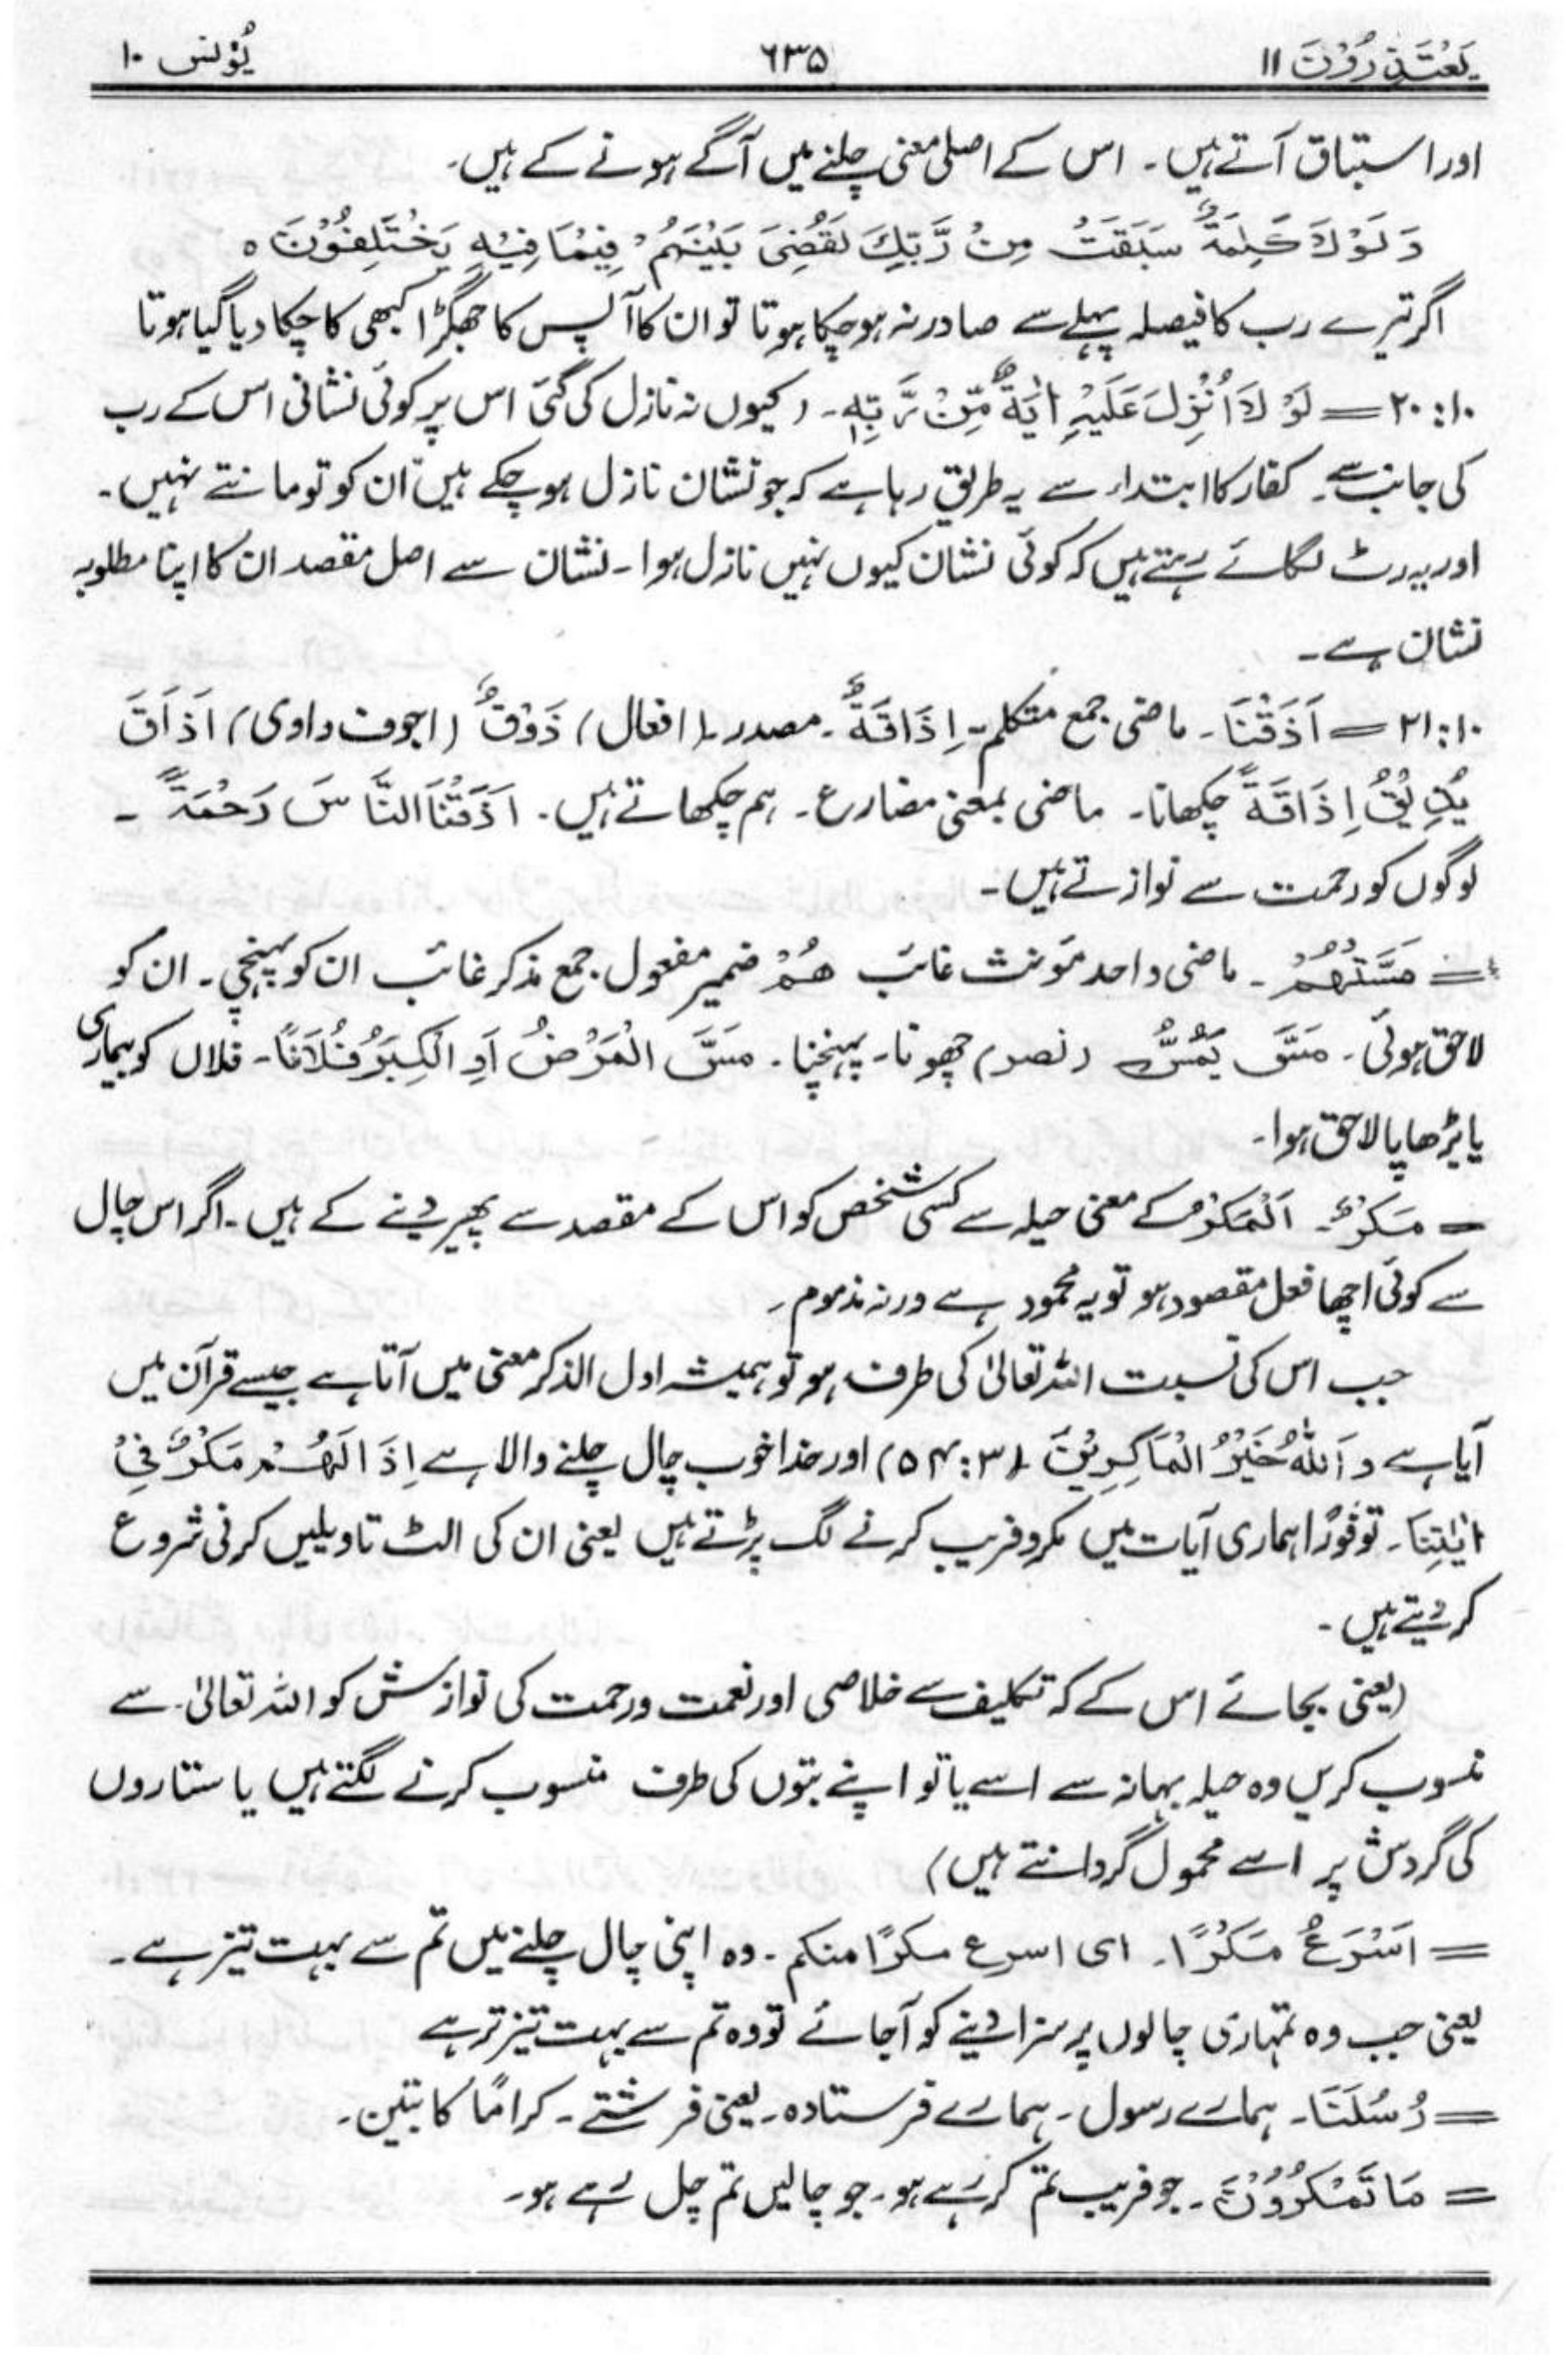 یَعْتَذِرُوْنَ ۱۱ ۶۳۵ یُوْنس ۱۰
اور استباق آتے ہیں۔ اس کے اصلی معنی چلنے میں آگے ہونے کے ہیں۔
وَ لَوْلَا كَلِمَةٌ سَبَقَتْ مِنْ رَّبِّكَ لَقُضِیَ بَیْنَهُمْ فِیْمَا فِیْهِ یَخْتَلِفُوْنَ ہ
اگر تیرے رب کا فیصلہ پہلے سے صادر نہ ہو چکا ہوتا تو ان کا آپس کا جھگڑا کبھی کا چکا دیا گیا ہوتا
۱۰:۲۰ = لَوْ لَا اُنْزِلَ عَلَیْهِ اٰیَةٌ مِّنْ رَّبِّهٖ۔ (کیوں نہ نازل کی گئی اس پر کوئی نشانی اس کے رب
کی جانب سے۔ کفار کا ابتداء سے یہ طریق رہا ہے کہ جو نشان نازل ہو چکے ہیں ان کو تو مانتے نہیں۔
اور یہ رٹ لگائے رہتے ہیں کہ کوئی نشان کیوں نہیں نازل ہوا۔ نشان سے اصل مقصد ان کا اپنا مطلوبہ
نشان ہے۔
۱۰:۲۱ = اَذَقْنَا۔ ماضی جمع متکلم۔ اِذَاقَةٌ۔ مصدر۔ (افعال) ذَوْقٌ (اجوف واوی) اَذَاقَ
یُذِیْقُ اِذَاقَةً چکھانا۔ ماضی بمعنی مضارع۔ ہم چکھاتے ہیں۔ اَذَقْنَا النَّاسَ رَحْمَةً۔
لوگوں کو رحمت سے نوازتے ہیں۔
= مَسَّتْهُمْ۔ ماضی واحد مؤنث غائب هُمْ ضمیر مفعول جمع مذکر غائب ان کو پہنچی۔ ان کو
لاحق ہوئی۔ مَسَّ یَمُسُّ (نصر) چھونا۔ پہنچنا۔ مَسَّ الْمَرْضُ اَوِ الْكِبَرُ فُلَانًا۔ فلاں کو بیماری
یا بڑھاپا لاحق ہوا۔
= مَكْرٌ۔ اَلْمَكْرُ کے معنی حیلہ سے کسی شخص کو اس کے مقصد سے پھیر دینے کے ہیں۔ اگر اس چال
سے کوئی اچھا فعل مقصود ہو تو یہ محمود ہے ورنہ مذموم۔
جب اس کی نسبت اللہ تعالیٰ کی طرف ہو تو ہمیشہ اول الذکر معنی میں آتا ہے جیسے قرآن میں
آیا ہے وَ اَللهُ خَیْرُ الْمَاكِرِیْنَ (۳:۵۴) اور خدا خوب چال چلنے والا ہے اِذَا لَهُمْ مَكْرٌ فِیْ
اٰیٰتِنَا۔ تو فورًا ہماری آیات میں مکر و فریب کرنے لگ پڑتے ہیں یعنی ان کی الٹ تاویلیں کرنی شروع
کر دیتے ہیں۔
(یعنی بجائے اس کے کہ تکلیف سے خلاصی اور نعمت و رحمت کی نوازش کو اللہ تعالیٰ سے
منسوب کریں وہ حیلہ بہانہ سے اسے یا تو اپنے بتوں کی طرف منسوب کرنے لگتے ہیں یا ستاروں
کی گردش پر اسے محمول گردانتے ہیں)
= اَسْرَعُ مَكْرًا۔ ای اسرع مكرًا منكم۔ وہ اپنی چال چلنے میں تم سے بہت تیز ہے۔
یعنی جب وہ تمہاری چالوں پر سزا دینے کو آجائے تو وہ تم سے بہت تیز تر ہے
= رُسُلَنَا۔ ہمارے رسول۔ ہمارے فرستادہ۔ یعنی فرشتے۔ کرامًا کاتبین۔
= مَا تَمْكُرُوْنَ۔ جو فریب تم کر رہے ہو۔ جو چالیں تم چل رہے ہو۔